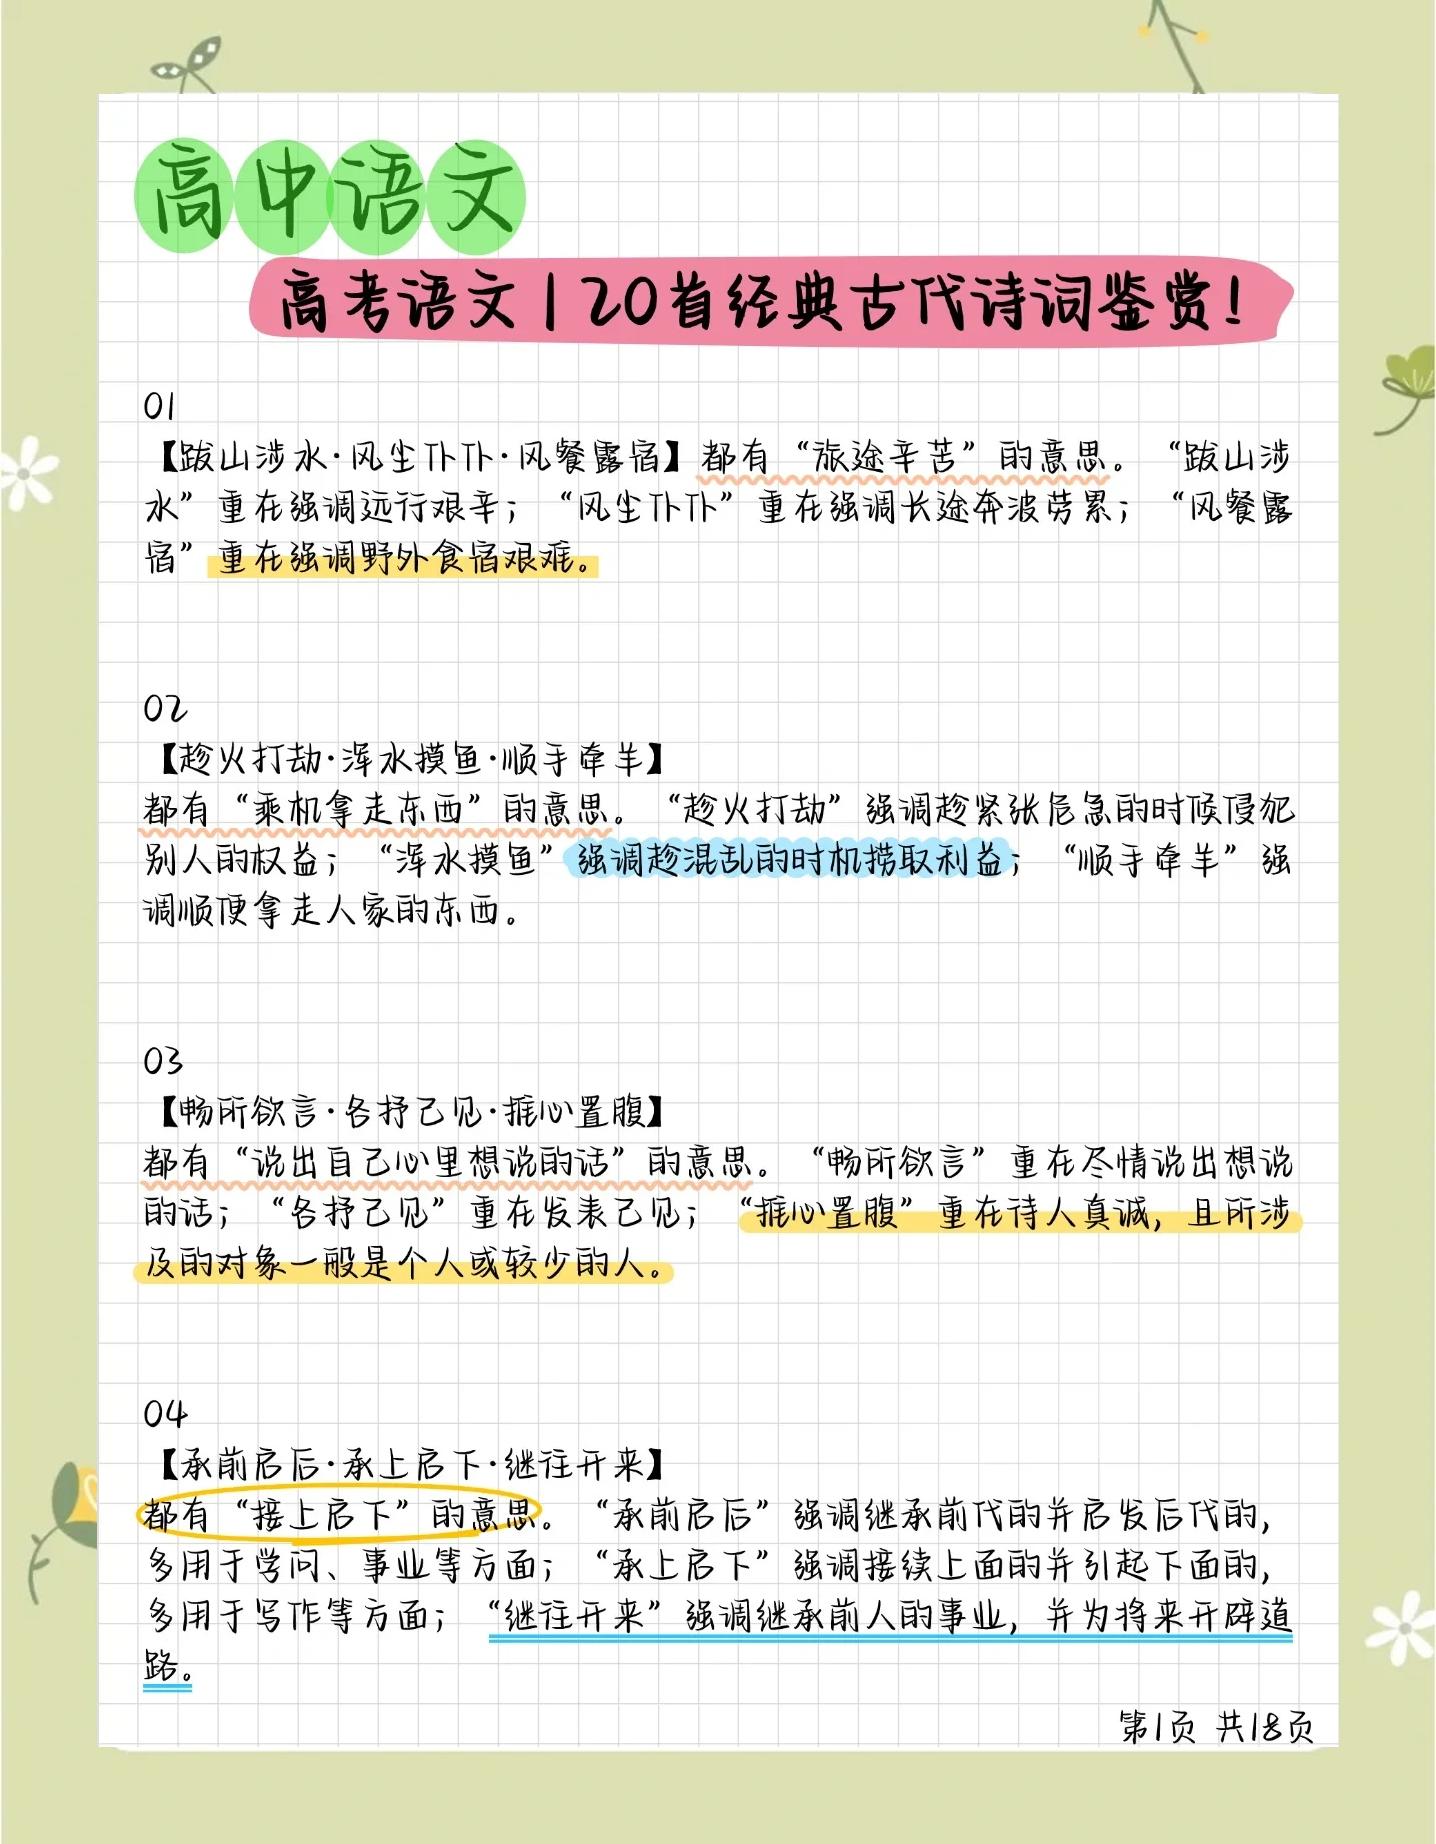 高中语文
高考语文|20首经典古代诗词鉴赏!
01
【跋山涉水·风尘仆仆·风餐露宿】都有“旅途辛苦”的意思。“跋山涉
水”重在强调远行艰辛;“风尘仆仆”重在强调长途奔波劳累;“风餐露
宿”重在强调野外食宿艰难。
02
【趁火打劫·浑水摸鱼·顺手牵羊】
都有“乘机拿走东西”的意思。“趁火打劫”强调趁紧张危急的时候侵犯
别人的权益;“浑水摸鱼”强调趁混乱的时机捞取利益;“顺手牵羊”强
调顺便拿走人家的东西。
03
【畅所欲言·各抒己见·推心置腹】
都有“说出自己心里想说的话”的意思。“畅所欲言”重在尽情说出想说
的话;“各抒己见”重在发表己见;“推心置腹”重在待人真诚,且所涉
及的对象一般是个人或较少的人。
04
【承前启后·承上启下·继往开来】
都有“接上启下”的意思。“承前启后”强调继承前代的并启发后代的,
多用于学问、事业等方面;“承上启下”强调接续上面的并引起下面的,
多用于写作等方面;“继往开来”强调继承前人的事业,并为将来开辟道
路。
第1页 共18页